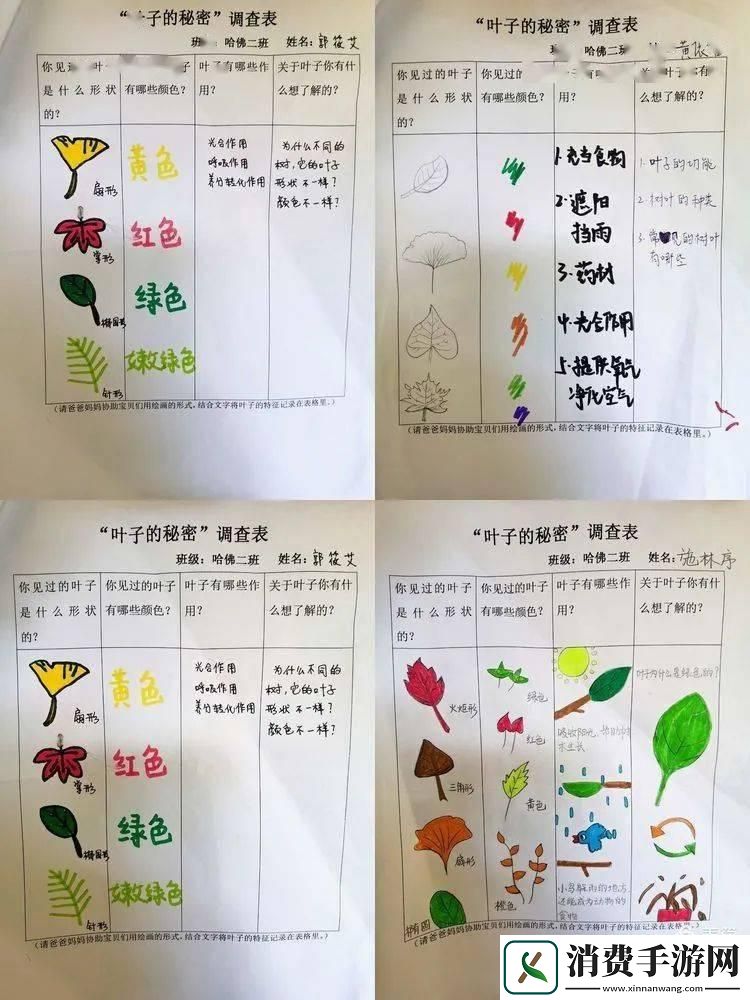 子的秘密”调查表
哈佛二班 姓名：郭筱艾
叶子有哪些作用？
关于叶子你有什么想了解的？
是什么形状的？
有哪些颜色？
扇形
黄色
掌形
红色
椭圆形
绿色
针形
嫩绿色
光合作用
呼吸作用
养分转化作用
为什么不同的
树，它的叶子
形状不一样？
颜色不一样？
（请爸爸妈妈协助宝贝们用绘画的形式，结合文字将叶子的特征记录在表格里。）
“叶子的秘密”调查表
哈佛二班
你见过的叶子是什么形状的？
你见过的
有哪些颜色？
用？
么想了解的？
1.充当食物
2.遮阳
挡雨
3.药材
4.光合作用
5.提供氧气
净化空气
1.叶子的功能
2.树叶的种类
3.常见的树叶
有哪些
（请爸爸妈妈协助宝贝们用绘画的形式，结合文字将叶子的特征记录在表格里。）
“叶子的秘密”调查表
班级：哈佛二班 姓名：郭筱艾
你见过的叶子是什么形状的？
你见过的叶子有哪些颜色？
叶子有哪些作用？
关于叶子你有什么想了解的？
扇形
黄色
掌形
红色
椭圆形
绿色
针形
嫩绿色
光合作用
呼吸作用
养分转化作用
为什么不同的
树，它的叶子
形状不一样？
颜色不一样？
（请爸爸妈妈协助宝贝们用绘画的形式，结合文字将叶子的特征记录在表格里。）
“叶子的秘密”调查表
班级：哈佛二班 姓名：施林序
你见过的叶子是什么形状的？
你见过的叶子有哪些颜色？
叶子有哪些作用？
关于叶子你有什么想了解的？
火炬形
三角形
扇形
椭圆
绿色
红色
黄色
橙色
吸收阳光，帮助树
木生长
小鸟躲雨的地方，
还能成为动物的
食物
叶子为什么是绿色的？
（请爸爸妈妈协助宝贝们用绘画的形式，结合文字将叶子的特征记录在表格里。）
消费手游网
www.xinnanwang.com